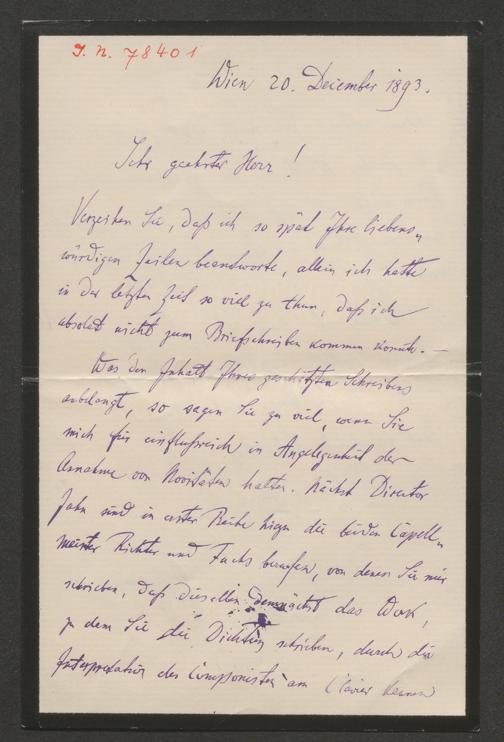 I. N. 78401
Wien 20. December 1893.
Sehr geehrter Herr!
Verzeihen Sie, daß ich so spät Ihre liebens„
würdigen Zeilen beantworte, allein ich hatte
in der letzten Zeit so viel zu thun, daß ich
absolut nicht zum Briefschreiben kommen konnte. —
Was den Inhalt Ihres geschätzten Schreibens
anbelangt, so sagen Sie zu viel, wenn Sie
mich für einflußreich in Angelegenheit der
Annahme von Novitäten halten. Nächst Director
Jahn sind in erster Reihe hiezu die beiden Capell„
meister Richter und Fuchs berufen, von denen Sie mir
schrieben, daß dieselben demnächst das Werk,
zu dem Sie die Dichtung schrieben, durch die
Interpretation des Componisten am Clavier kennen